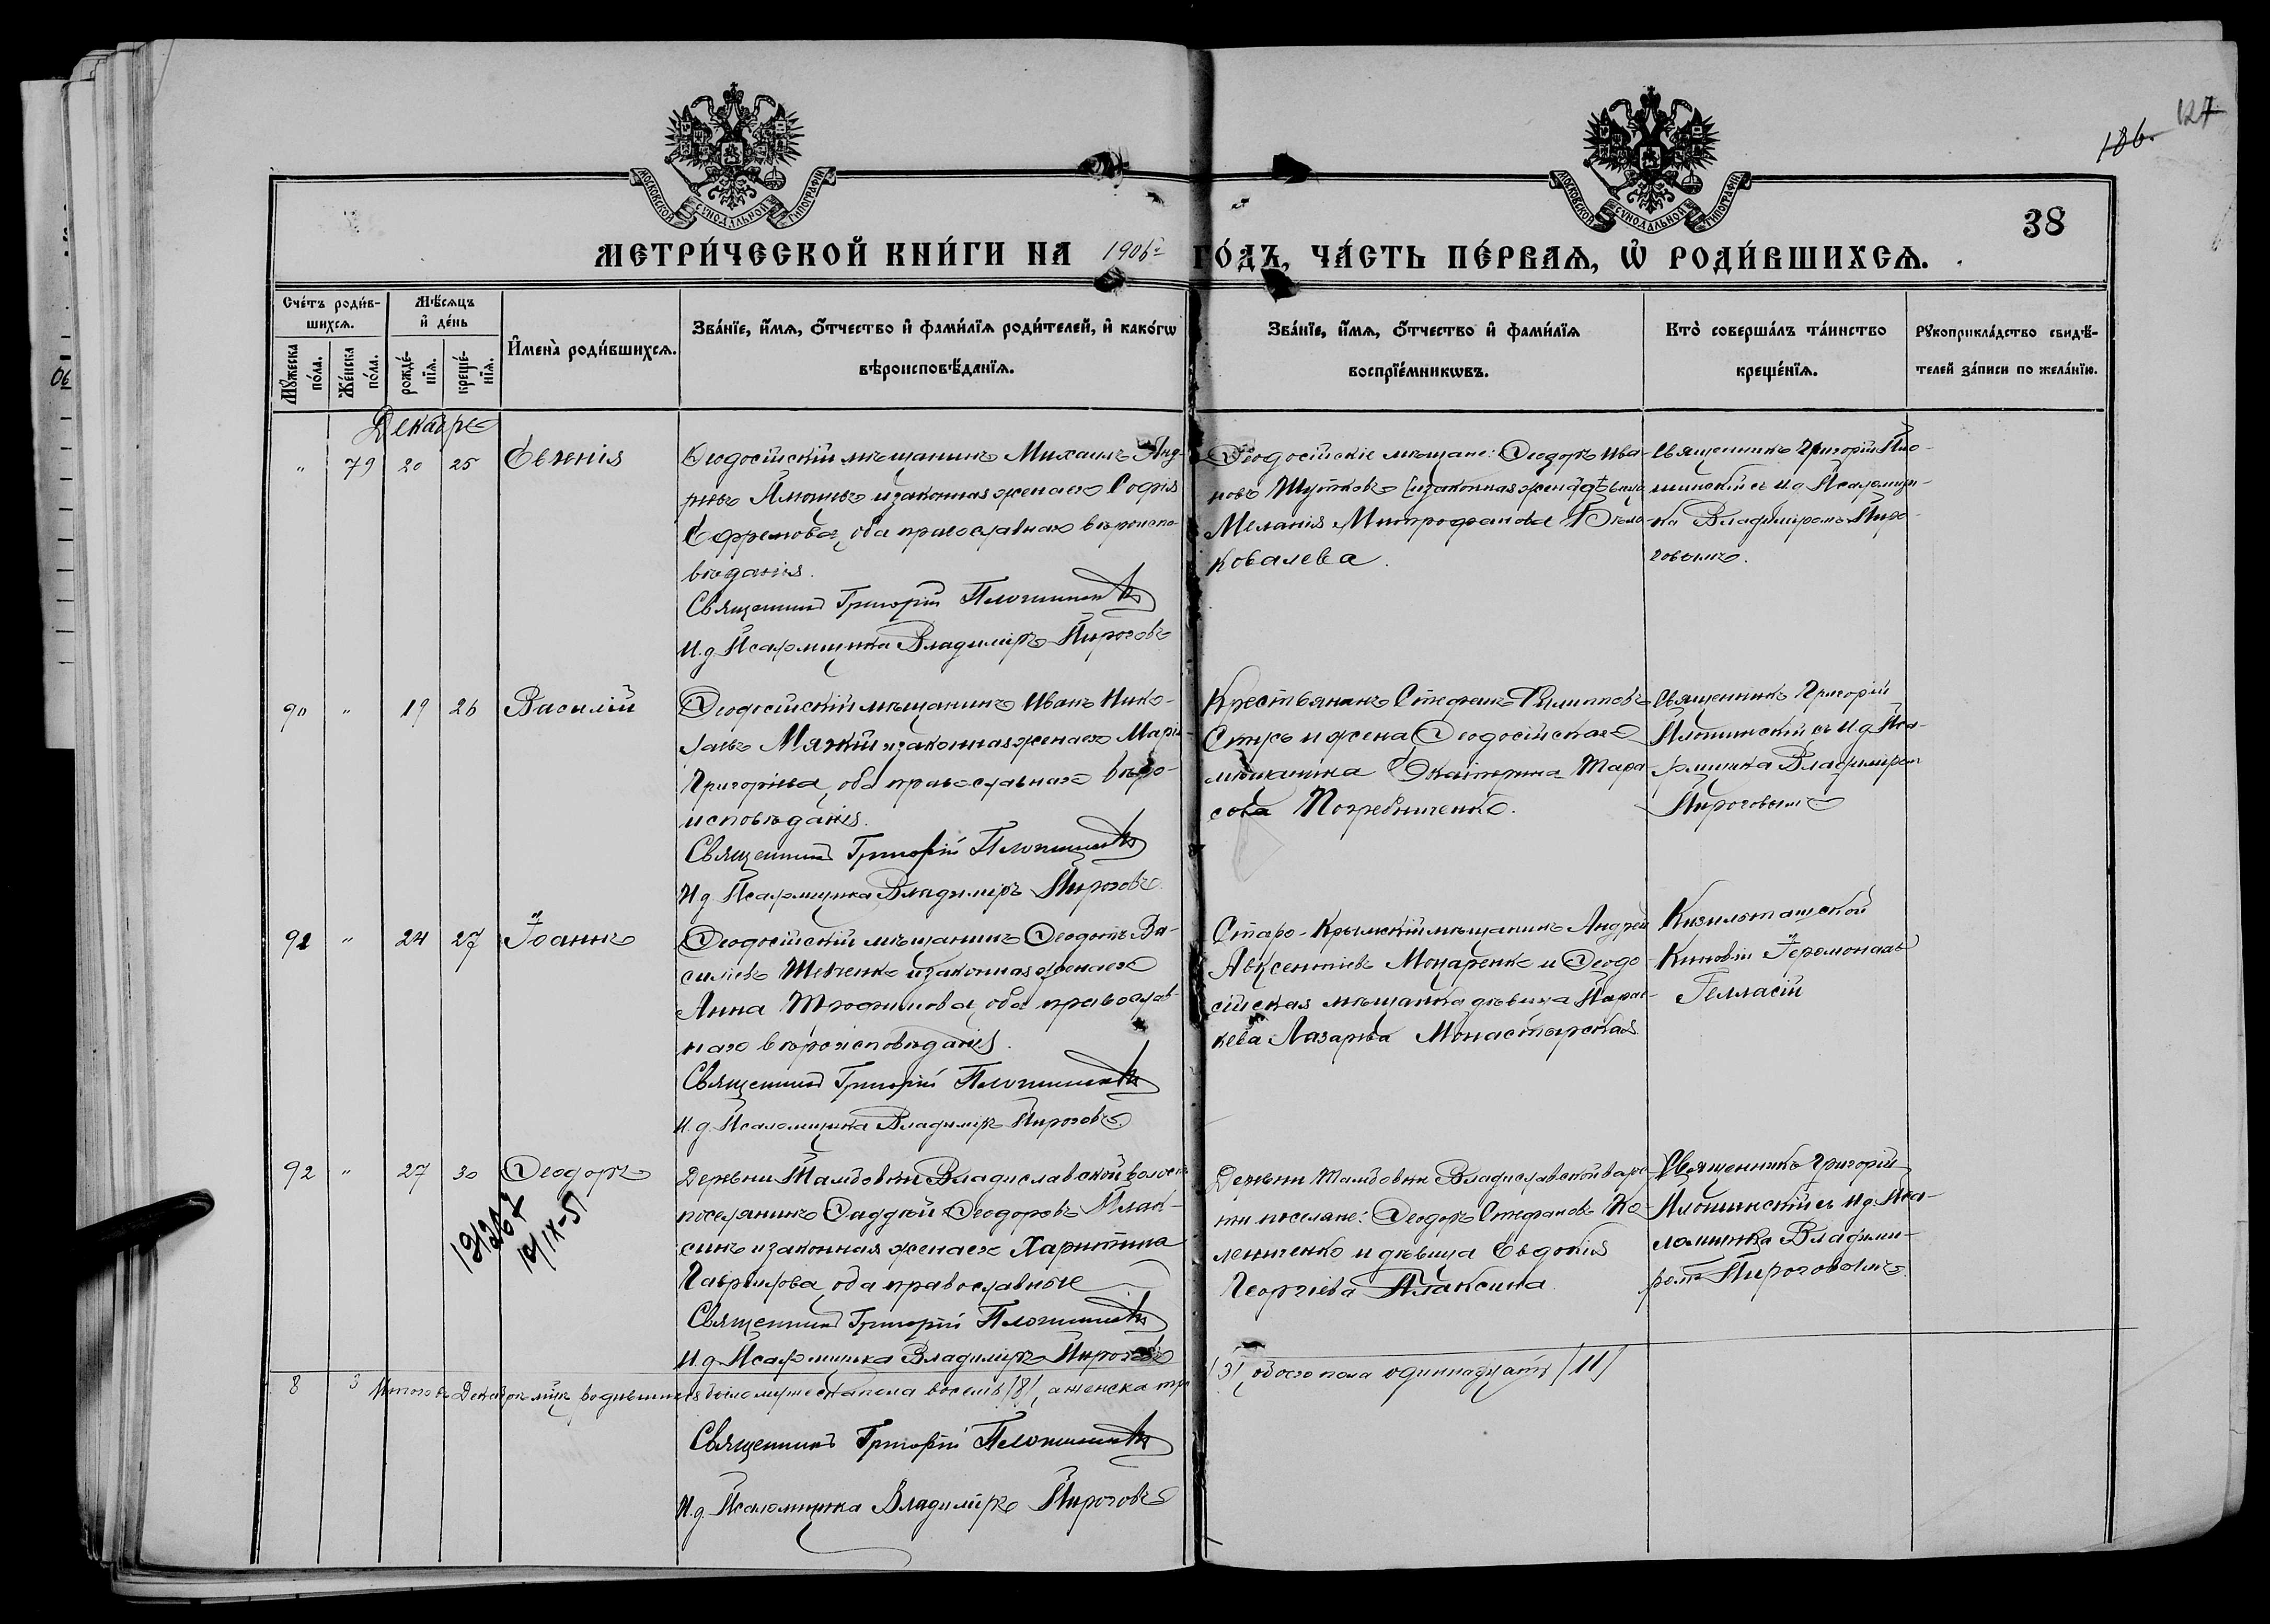 127
186.
МОСКОВСКОЙ СУНОДАЛЬНОЙ ТИПОГРАФІИ
МОСКОВСКОЙ СУНОДАЛЬНОЙ ТИПОГРАФІИ
38
МЕТРИ́ЧЕСКОЙ КНИ́ГИ НА 1906й ГО́ДЪ, ЧА́СТЬ ПЕ́РВАѦ, Ѡ РОДИ́ВШИХСѦ.
Сче́тъ роди́в-
шихсѧ.
Мꙋ́жеска
по́ла.
Же́нска
по́ла.
Мѣ́сѧцъ
и҆ де́нь
рожде́-
нїѧ.
креще́-
нїѧ.
И҆мена̀ роди́вшихсѧ.
Зва́нїе, и҆́мѧ, ѻ҆́тчество и҆ фами́лїѧ роди́телей, и҆ како́гѡ
вѣроисповѣ́данїѧ.
Зва́нїе, и҆́мѧ, ѻ҆́тчество и҆ фами́лїѧ
воспрїе́мникѡвъ.
Кто̀ соверша́лъ та́инство
креще́нїѧ.
Рꙋкоприкла́дство свидѣ́-
телей за́писи по жела́нїю.
06
Декабрь
" 79 20 25 Евгенія
Ѳеодосійскій мѣщанинъ Михаилъ Анд-
и законная жена его Софія
Ефремова, оба православнаго вѣроиспо-
вѣданія.
Священникъ Григорій
И. д. Псаломщика Владиміръ Пироговъ
Ѳеодосійскіе мѣщане: Ѳеодоръ Ива-
новъ Шутковъ и законная жена
Меланія Митрофанова Бѣло-
ковалева.
Священникъ Григорій
съ и д Псаломщи-
ка Владиміромъ Пиро-
говымъ.
90 " 19 26 Василій
Ѳеодосійскій мѣщанинъ Иванъ Нико-
лаевъ Мягкій и законная жена его Марія
Григорьева, оба православнаго вѣро-
исповѣданія.
Священникъ Григорій
И д Псаломщика Владиміръ Пироговъ
Крестьянинъ Стефанъ Филипповъ
Стусь и жена Ѳеодосійская
мѣщанка Екатерина Тара-
сова Погребниченко.
Священникъ Григорій
съ И д Пса-
ломщика Владиміромъ
Пироговымъ
91 " 24 27 Іоаннъ
Ѳеодосійскій мѣщанинъ Ѳеодотъ Ва-
сильевъ Шевченко и законная жена его
Анна Трофимова, оба православ-
наго вѣроисповѣданія.
Священникъ Григорій
И. д. Псаломщика Владиміръ Пироговъ
Старо-Крымскій мѣщанинъ Андрей
Авксентіевъ и Ѳеодо-
сійская мѣщанка дѣвица Парас-
кева Лазарева Монастырская
Кизильташской
Киновіи Іеромонахъ
Геласій
92 " 27 30 Ѳеодоръ
19/IX-51
Деревни Владиславской волости
поселянинъ Ѳаддей Ѳеодоровъ Плак-
синъ и законная жена его Харитина
Гаврилова, оба православные
Священникъ Григорій
И. д. Псаломщика Владиміръ Пироговъ
Деревни Владиславской волос-
ти поселяне: Ѳеодоръ Стефановъ Ко-
ленченко и дѣвица Евдокія
Георгіева Плаксина.
Священникъ Григорій
съ И д. Пса-
ломщика Владимі-
ромъ Пироговымъ.
8 3 Итого въ Декабрѣ мцѣ родившихся было мужеска пола восемь /8/, а женска три /3/, обоего пола одиннадцать /11/
Священникъ Григорій
И. д. Псаломщика Владиміръ Пироговъ